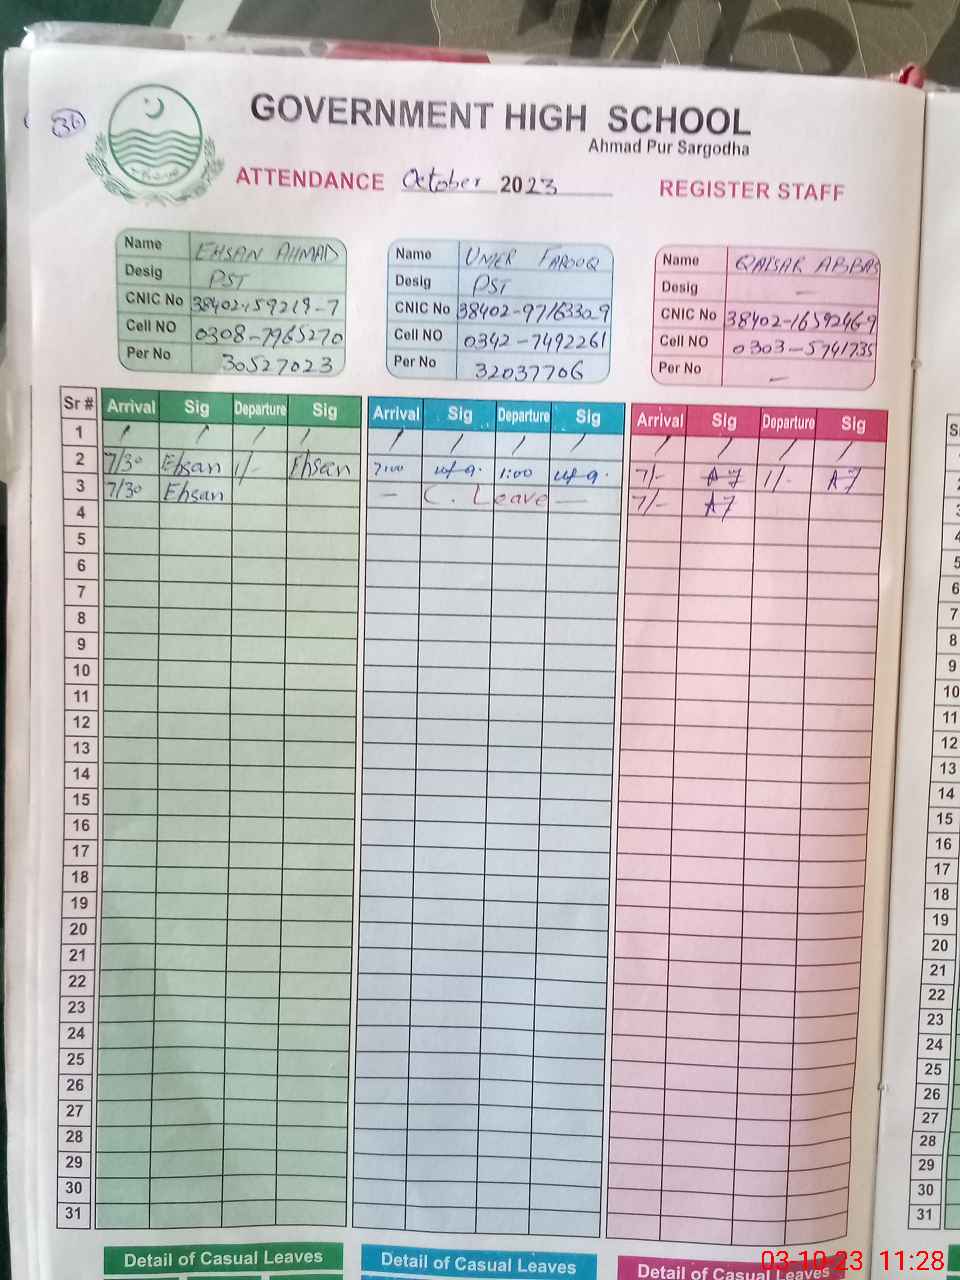 36
GOVERNMENT HIGH SCHOOL
Ahmad Pur Sargodha
ATTENDANCE October 2023 REGISTER STAFF
Name EHSAN AHMAD
Desig PST
CNIC No 38402-159219-7
Cell NO 0308-7965270
Per No 30527023
Name UMER FAROOQ
Desig PST
CNIC No 38402-9716330-9
Cell NO 0342-7492261
Per No 32037706
Name QAISAR ABBAS
Desig —
CNIC No 38402-1659246-9
Cell NO 0303-5741735
Per No —
Sr # Arrival Sig Departure Sig Arrival Sig Departure Sig Arrival Sig Departure Sig
1 / / / / / / / / / / / /
2 7/30 Ehsan 1/- Ehsan 7:00 1:00 7/- 1/-
3 7/30 Ehsan — C. Leave — 7/-
4
5
6
7
8
9
10
11
12
13
14
15
16
17
18
19
20
21
22
23
24
25
26
27
28
29
30
31
Detail of Casual Leaves Detail of Casual Leaves Detail of Casual Leaves
03-10-23 11:28